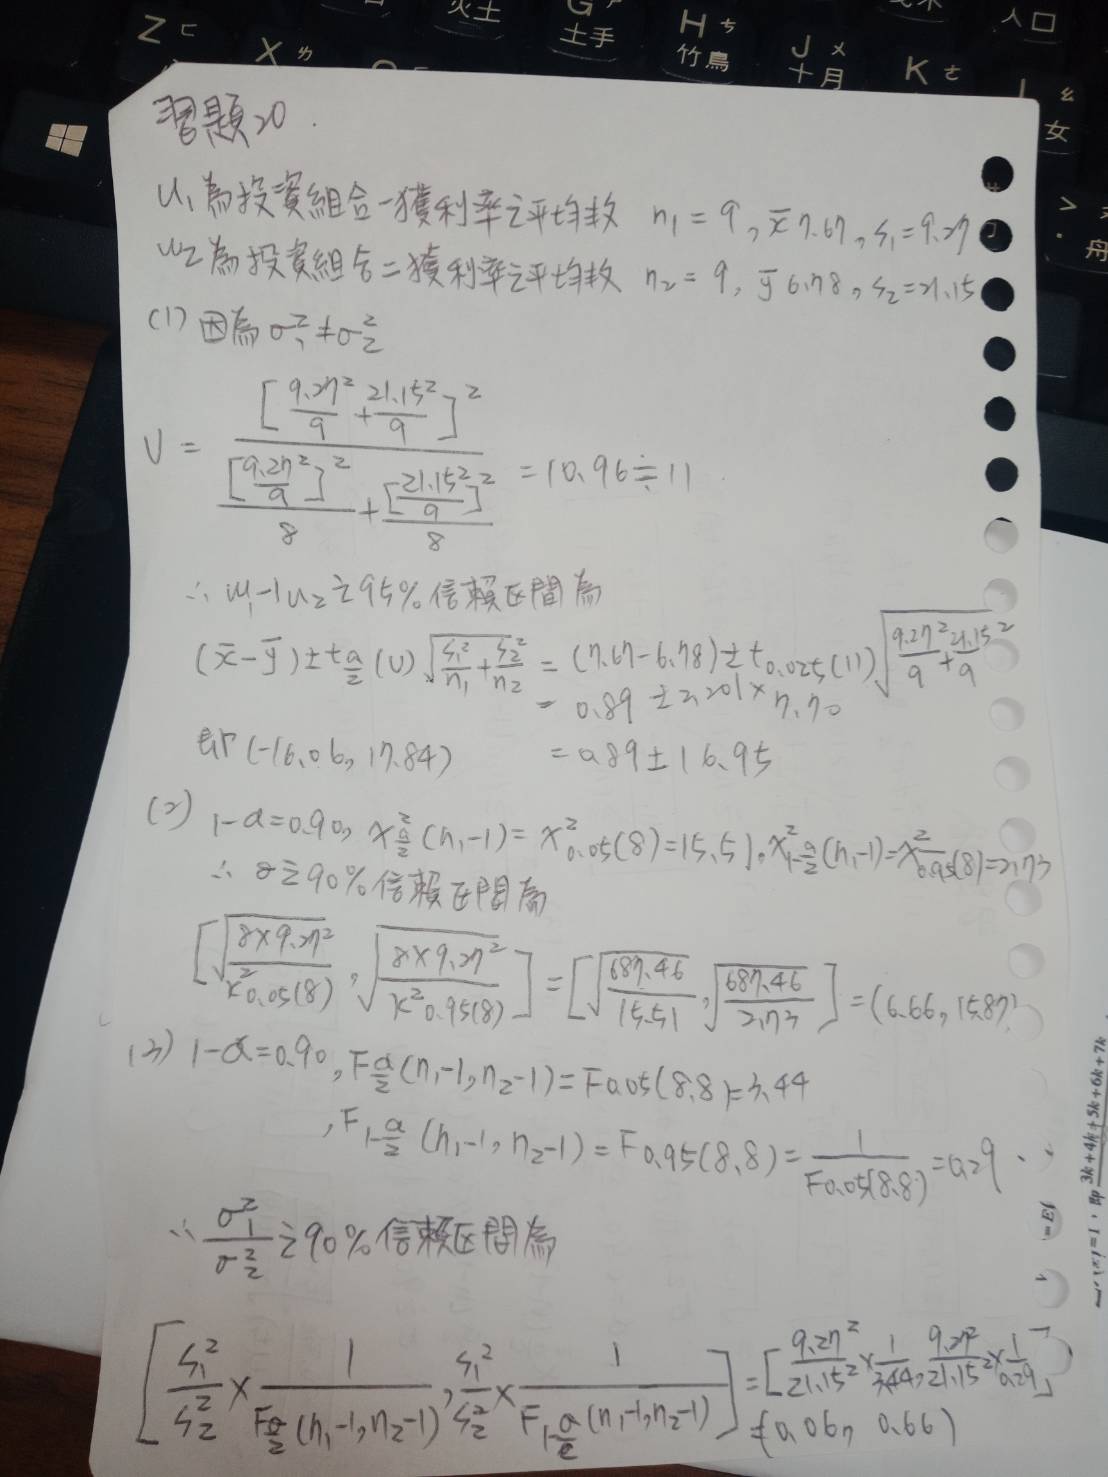 Z ㄈ
X ㄌ
火土
G
土手
H ㄘ
竹鳥
J ㄨ
十月
K ㄜ
人口
ㄠ
女
>
舟
習題20.
u₁為投資組合一獲利率之平均數 n₁=9, x̄ 7.67, s₁=9.27
u₂為投資組合二獲利率之平均數 n₂=9, ȳ 6.78, s₂=21.15
(1) 因為σ₁²≠σ₂²
U = [9.27²/9 + 21.15²/9]² / ([9.27²/9]²/8 + [21.15²/9]²/8) = 10.96 ≑ 11
∴ u₁-u₂之95%信賴區間為
(x̄-ȳ) ± t a/2 (U) √(s₁²/n₁ + s₂²/n₂) = (7.67-6.78) ± t0.025(11) √(9.27²/9 + 21.15²/9)
= 0.89 ± 2.201 × 7.70
即(-16.06, 17.84) = 0.89 ± 16.95
(2) 1-α=0.90, x² a/2 (n₁-1) = x²0.05(8)=15.51, x² 1-a/2 (n₁-1) = x²0.95(8)=2.73
∴ σ之90%信賴區間為
[√(8×9.27²/x²0.05(8)), √(8×9.27²/x²0.95(8))] = [√(687.46/15.51), √(687.46/2.73)] = (6.66, 15.87)
(3) 1-α=0.90, F a/2 (n₁-1, n₂-1) = F0.05(8.8)=3.44
, F 1-a/2 (n₁-1, n₂-1) = F0.95(8.8) = 1/F0.05(8.8) = 0.29
∴ σ₁²/σ₂² 之90%信賴區間為
[s₁²/s₂² × 1/F a/2 (n₁-1, n₂-1), s₁²/s₂² × 1/F 1-a/2 (n₁-1, n₂-1)] = [9.27²/21.15² × 1/3.44, 9.27²/21.15² × 1/0.29]
= (0.06, 0.66)
3k+4k+5k+6k+7k